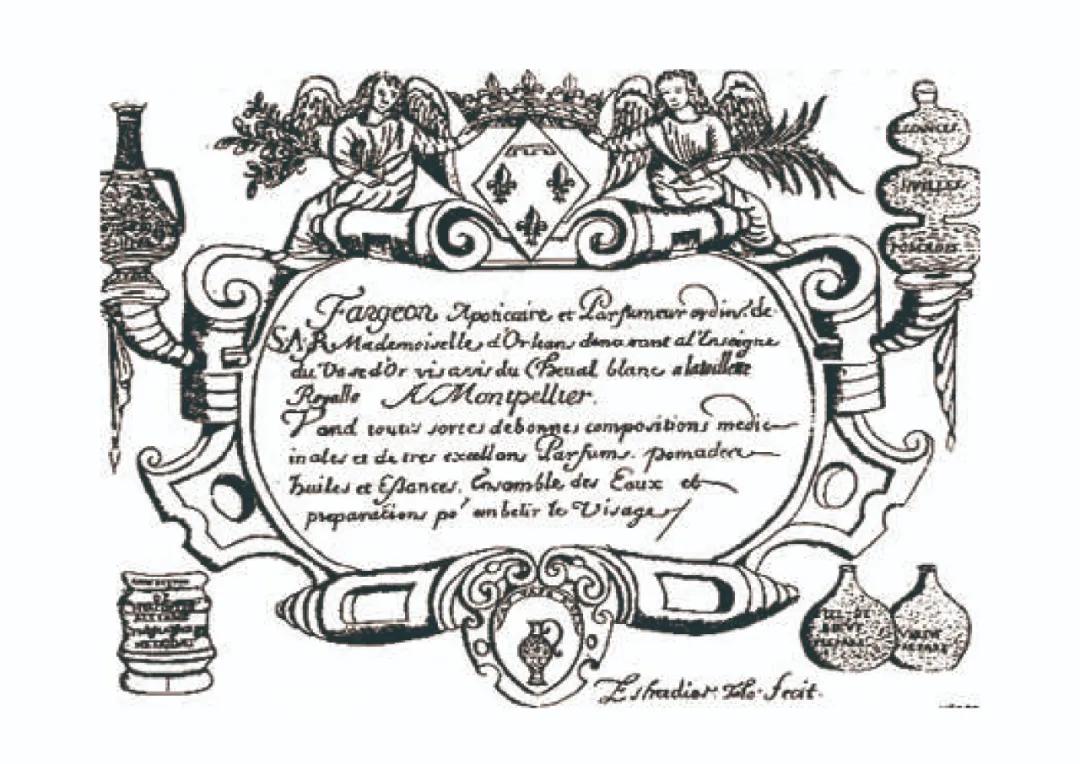 Fargeon Apoticaire et Parfumeur ordin.^re de
S.A.R Mademoiselle d'Orleans demeurant al'Enseigne
du Vase d'Or vis avis du Cheual blanc a la
Royalle A Montpellier.
Vand toutes sortes de bonnes compositions medic
inales et de tres excellans Parfums. pomades
huiles et Essances. Ensamble des Eaux et
preparations po^r ambelir le Visage
ESSANCES
HUILLES
POMADES
Estradier Tolo. fecit.